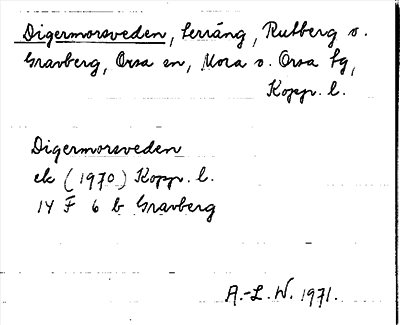 Digermorsveden, terräng, Rutberg o.
Gravberg, Orsa sn, Mora o. Orsa tg,
Kopp. l.
Digermorsveden
ek (1970) Kopp. l.
14 F 6 b Gravberg
A.-L. W. 1971.